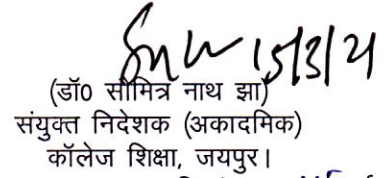 15/3/21
(डॉ0 सौमित्र नाथ झा)
संयुक्त निदेशक (अकादमिक)
कॉलेज शिक्षा, जयपुर।